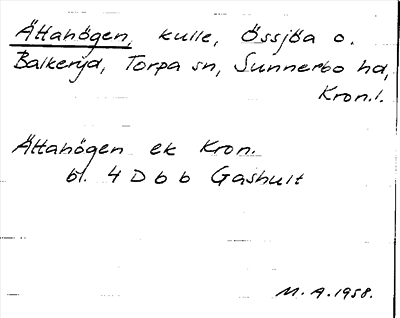 Ättahögen, kulle, Össjöa o.
Balkeryd, Torpa sn, Sunnerbo hd,
Kron.l.
Ättahögen ek Kron.
bl. 4 D b b Gashult
M. A. 1958.